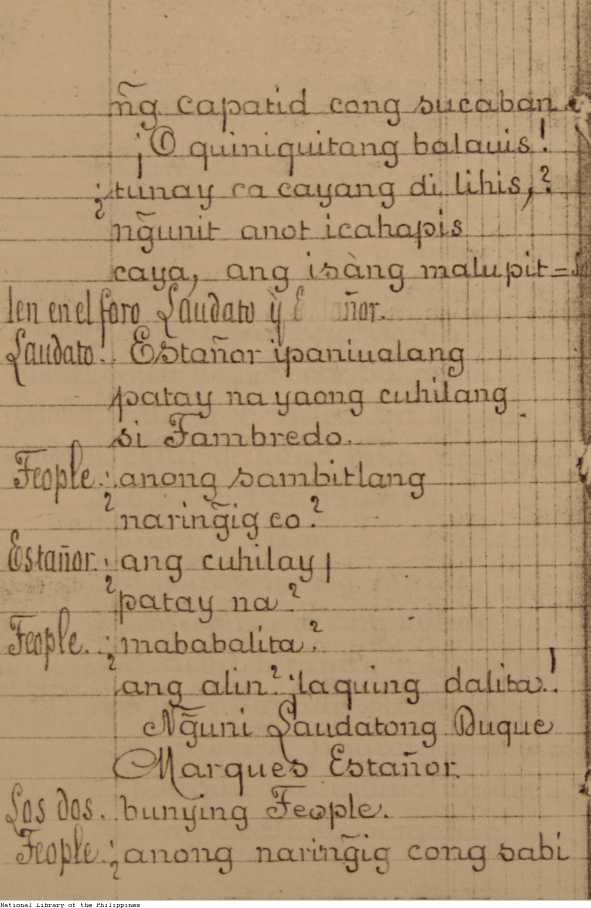 n͠g capatid cong sucaban
¡O quiniquitang balauis!
¿tunay ca cayang di lihis,?
ng̃unit anot icahapis
caya, ang isàng malupit=
len en el foro Laudato ÿ E ñor.
Laudato:. Estañor ipaniualang
patay na yaong cuhilang
si Fambredo.
Feople.:¿anong sambitlang
naring̃ig co?
Estañor:¿ang cuhilay,
¿patay na?
Feople.:¿mababalita?
ang alin? ¡laquing dalita.!
Ng̃uni Laudatong Duque
Marques Estañor.
Los dos. bunying Feople.
Feople:¿anong naring̃ig cong sabi
National Library of the Philippines